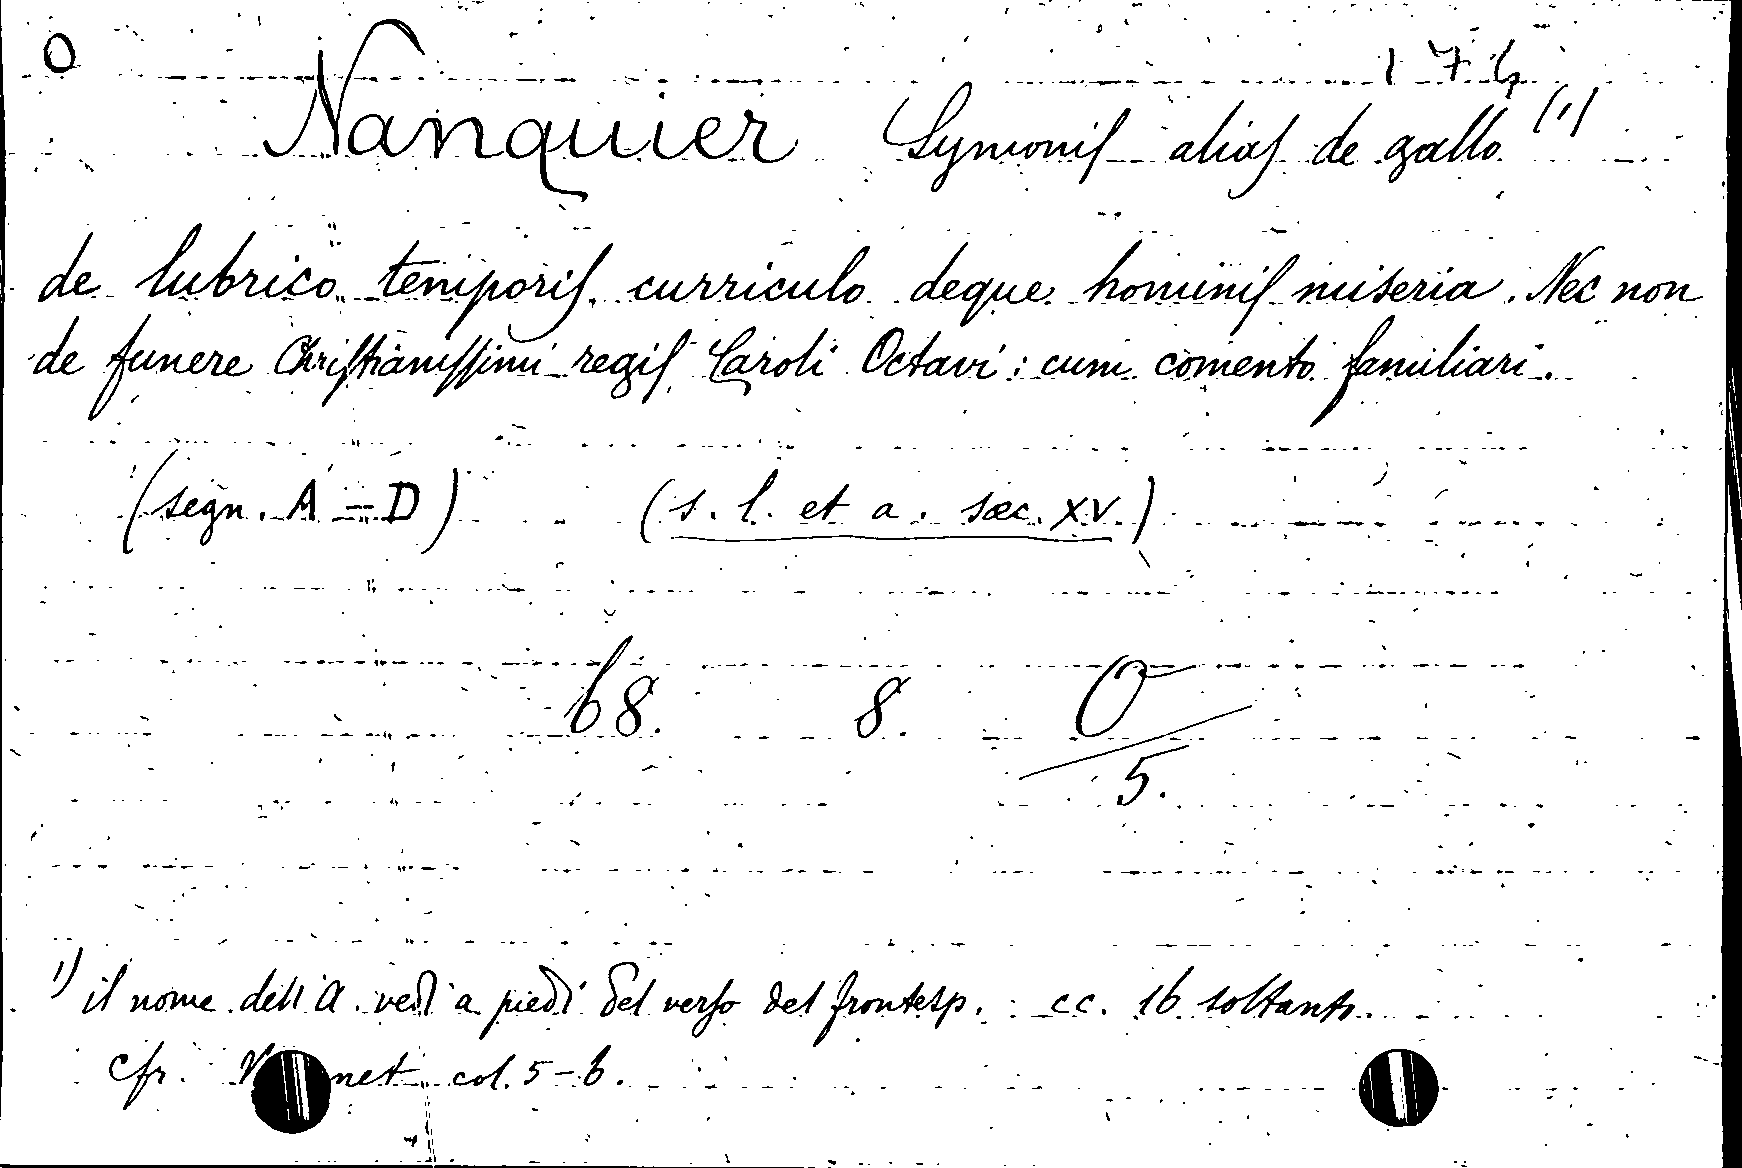 O
174
Nanquier Symonis alias de gallo (1)
de lubrico temporis curriculo deque hominis miseria. Nec non
de funere Christianissimi regis Caroli Octavi: cum comento familiari.
(segn. A-D) (s. l. et a. sæc. XV.)
68. 8. O
5.
1) il nome dell'A. vedi a piedi del verso del frontesp. : cc. 16 soltanto.
cfr. col. 5-6.